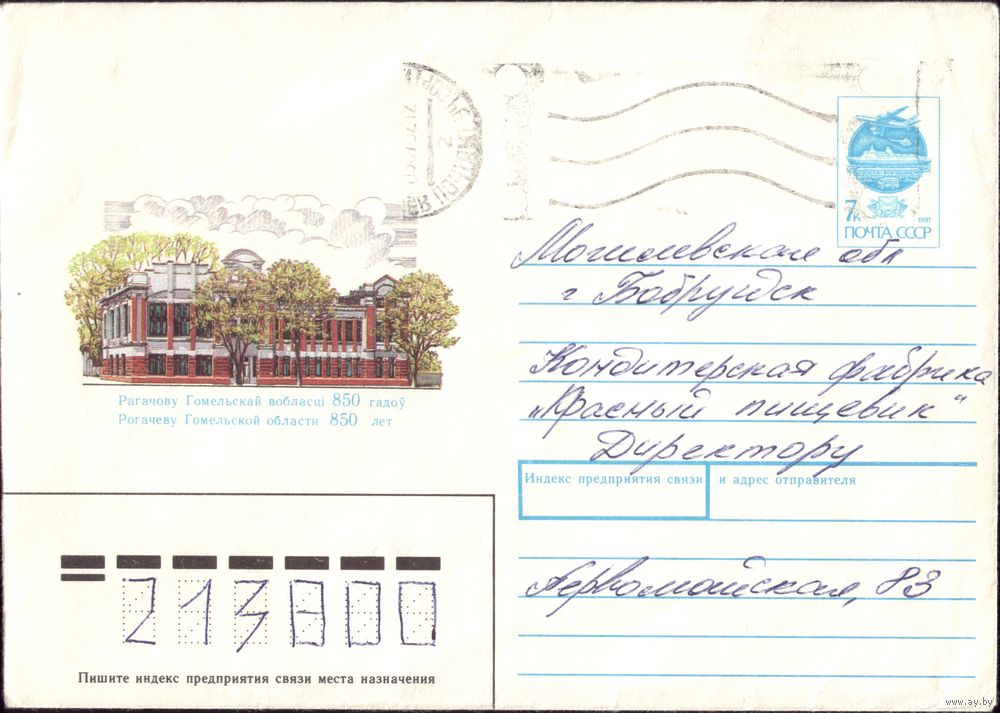 7к
1991
ПОЧТА СССР
Могилевская обл
г Бобруйск
Кондитерская фабрика
"Красный пищевик"
Директору
Рагачову Гомельскай вобласці 850 гадоў
Рогачеву Гомельской области 850 лет
Индекс предприятия связи и адрес отправителя
Первомайская, 83
213800
Пишите индекс предприятия связи места назначения
www.ay.by